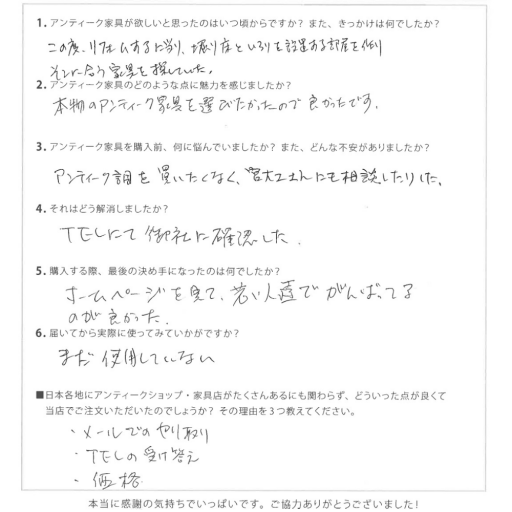 1. アンティーク家具が欲しいと思ったのはいつ頃からですか？ また、きっかけは何でしたか？
この度、リフォームするに当り、堀り座といろりを設置する部屋を作り
それに合う家具を探していた。
2. アンティーク家具のどのような点に魅力を感じましたか？
本物のアンティーク家具を選びたかったので良かったです。
3. アンティーク家具を購入前、何に悩んでいましたか？ また、どんな不安がありましたか？
アンティーク調を買いたくなく、宮大工さんにも相談したりした。
4. それはどう解消しましたか？
TELにて御社に確認した。
5. 購入する際、最後の決め手になったのは何でしたか？
ホームページを見て、若い人達でがんばってる
のが良かった。
6. 届いてから実際に使ってみていかがですか？
まだ使用していない
■日本各地にアンティークショップ・家具店がたくさんあるにも関わらず、どういった点が良くて
当店でご注文いただいたのでしょうか？ その理由を３つ教えてください。
・メールでのやり取り
・TELの受け答え
・価格
本当に感謝の気持ちでいっぱいです。ご協力ありがとうございました！